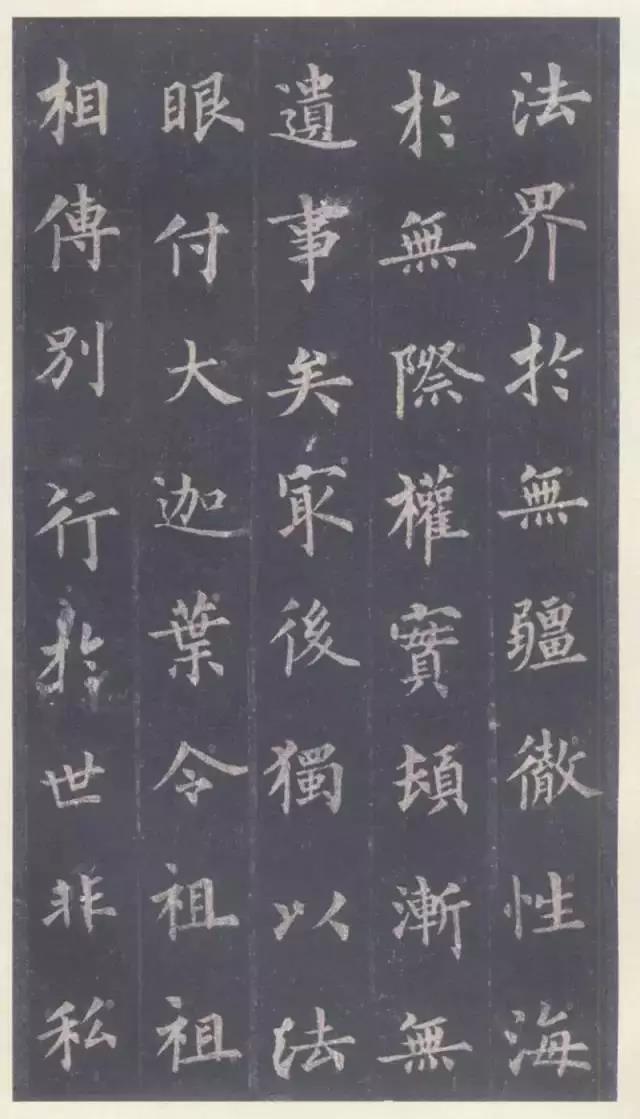 法界於無疆徹性海
於無際權實頓漸無
遺事矣㝡後獨以法
眼付大迦葉令祖祖
相傳別行於世非私